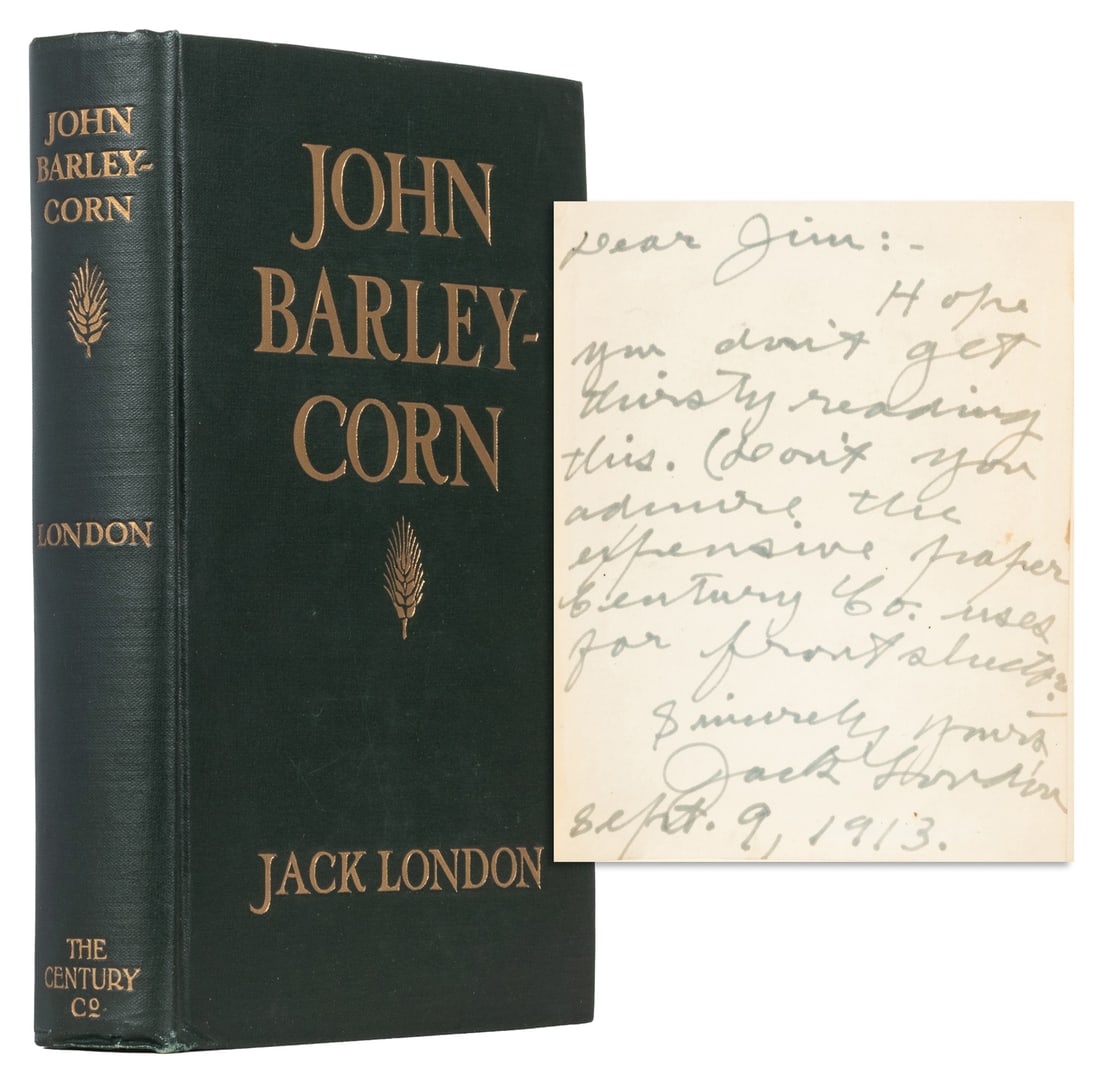 JOHN
BARLEY-
CORN
LONDON
THE
CENTURY
Cº
JOHN
BARLEY-
CORN
JACK LONDON
Dear Jim:-
Hope
you don't get
thirsty reading
this. (Don't you
admire the
expensive paper
Century Co. uses
for front sheets?
Sincerely yours,
Jack London
Sept. 9, 1913.